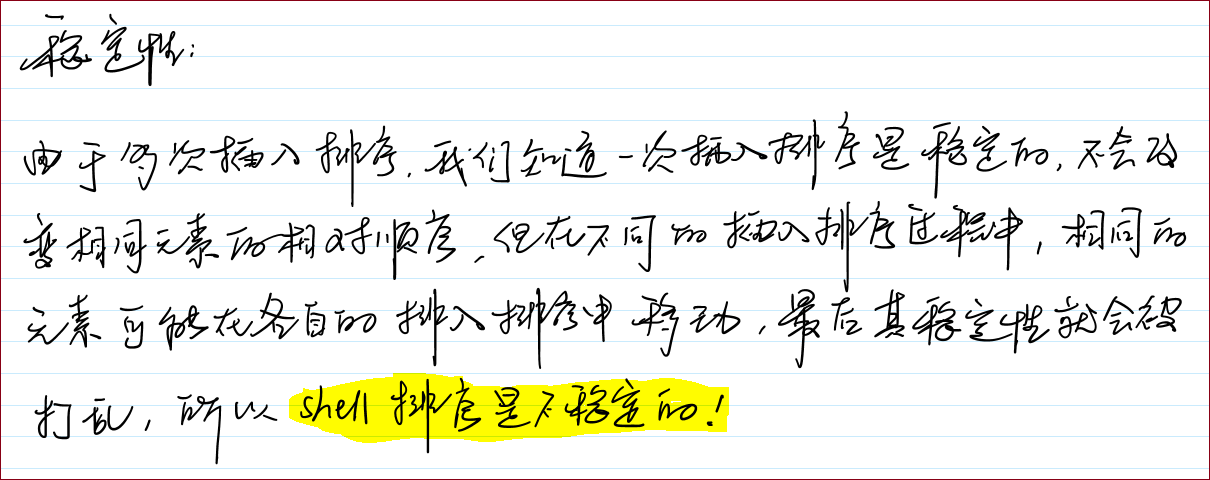 稳定性:
由于多次插入排序,我们知道一次插入排序是稳定的,不会改
变相同元素的相对顺序,但在不同的插入排序过程中,相同的
元素可能在各自的排入排序中移动,最后其稳定性就会被
打乱,所以shell排序是不稳定的!